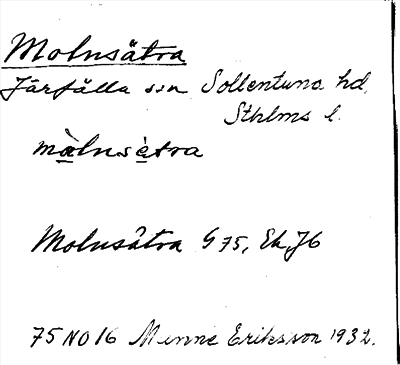 Molnsätra
Järfälla ssn Sollentuna hd.
Sthlms l.
mòlnsètra
Molnsätra G 75, Ek, J6
75 NO 16 Minne Eriksson 1932.